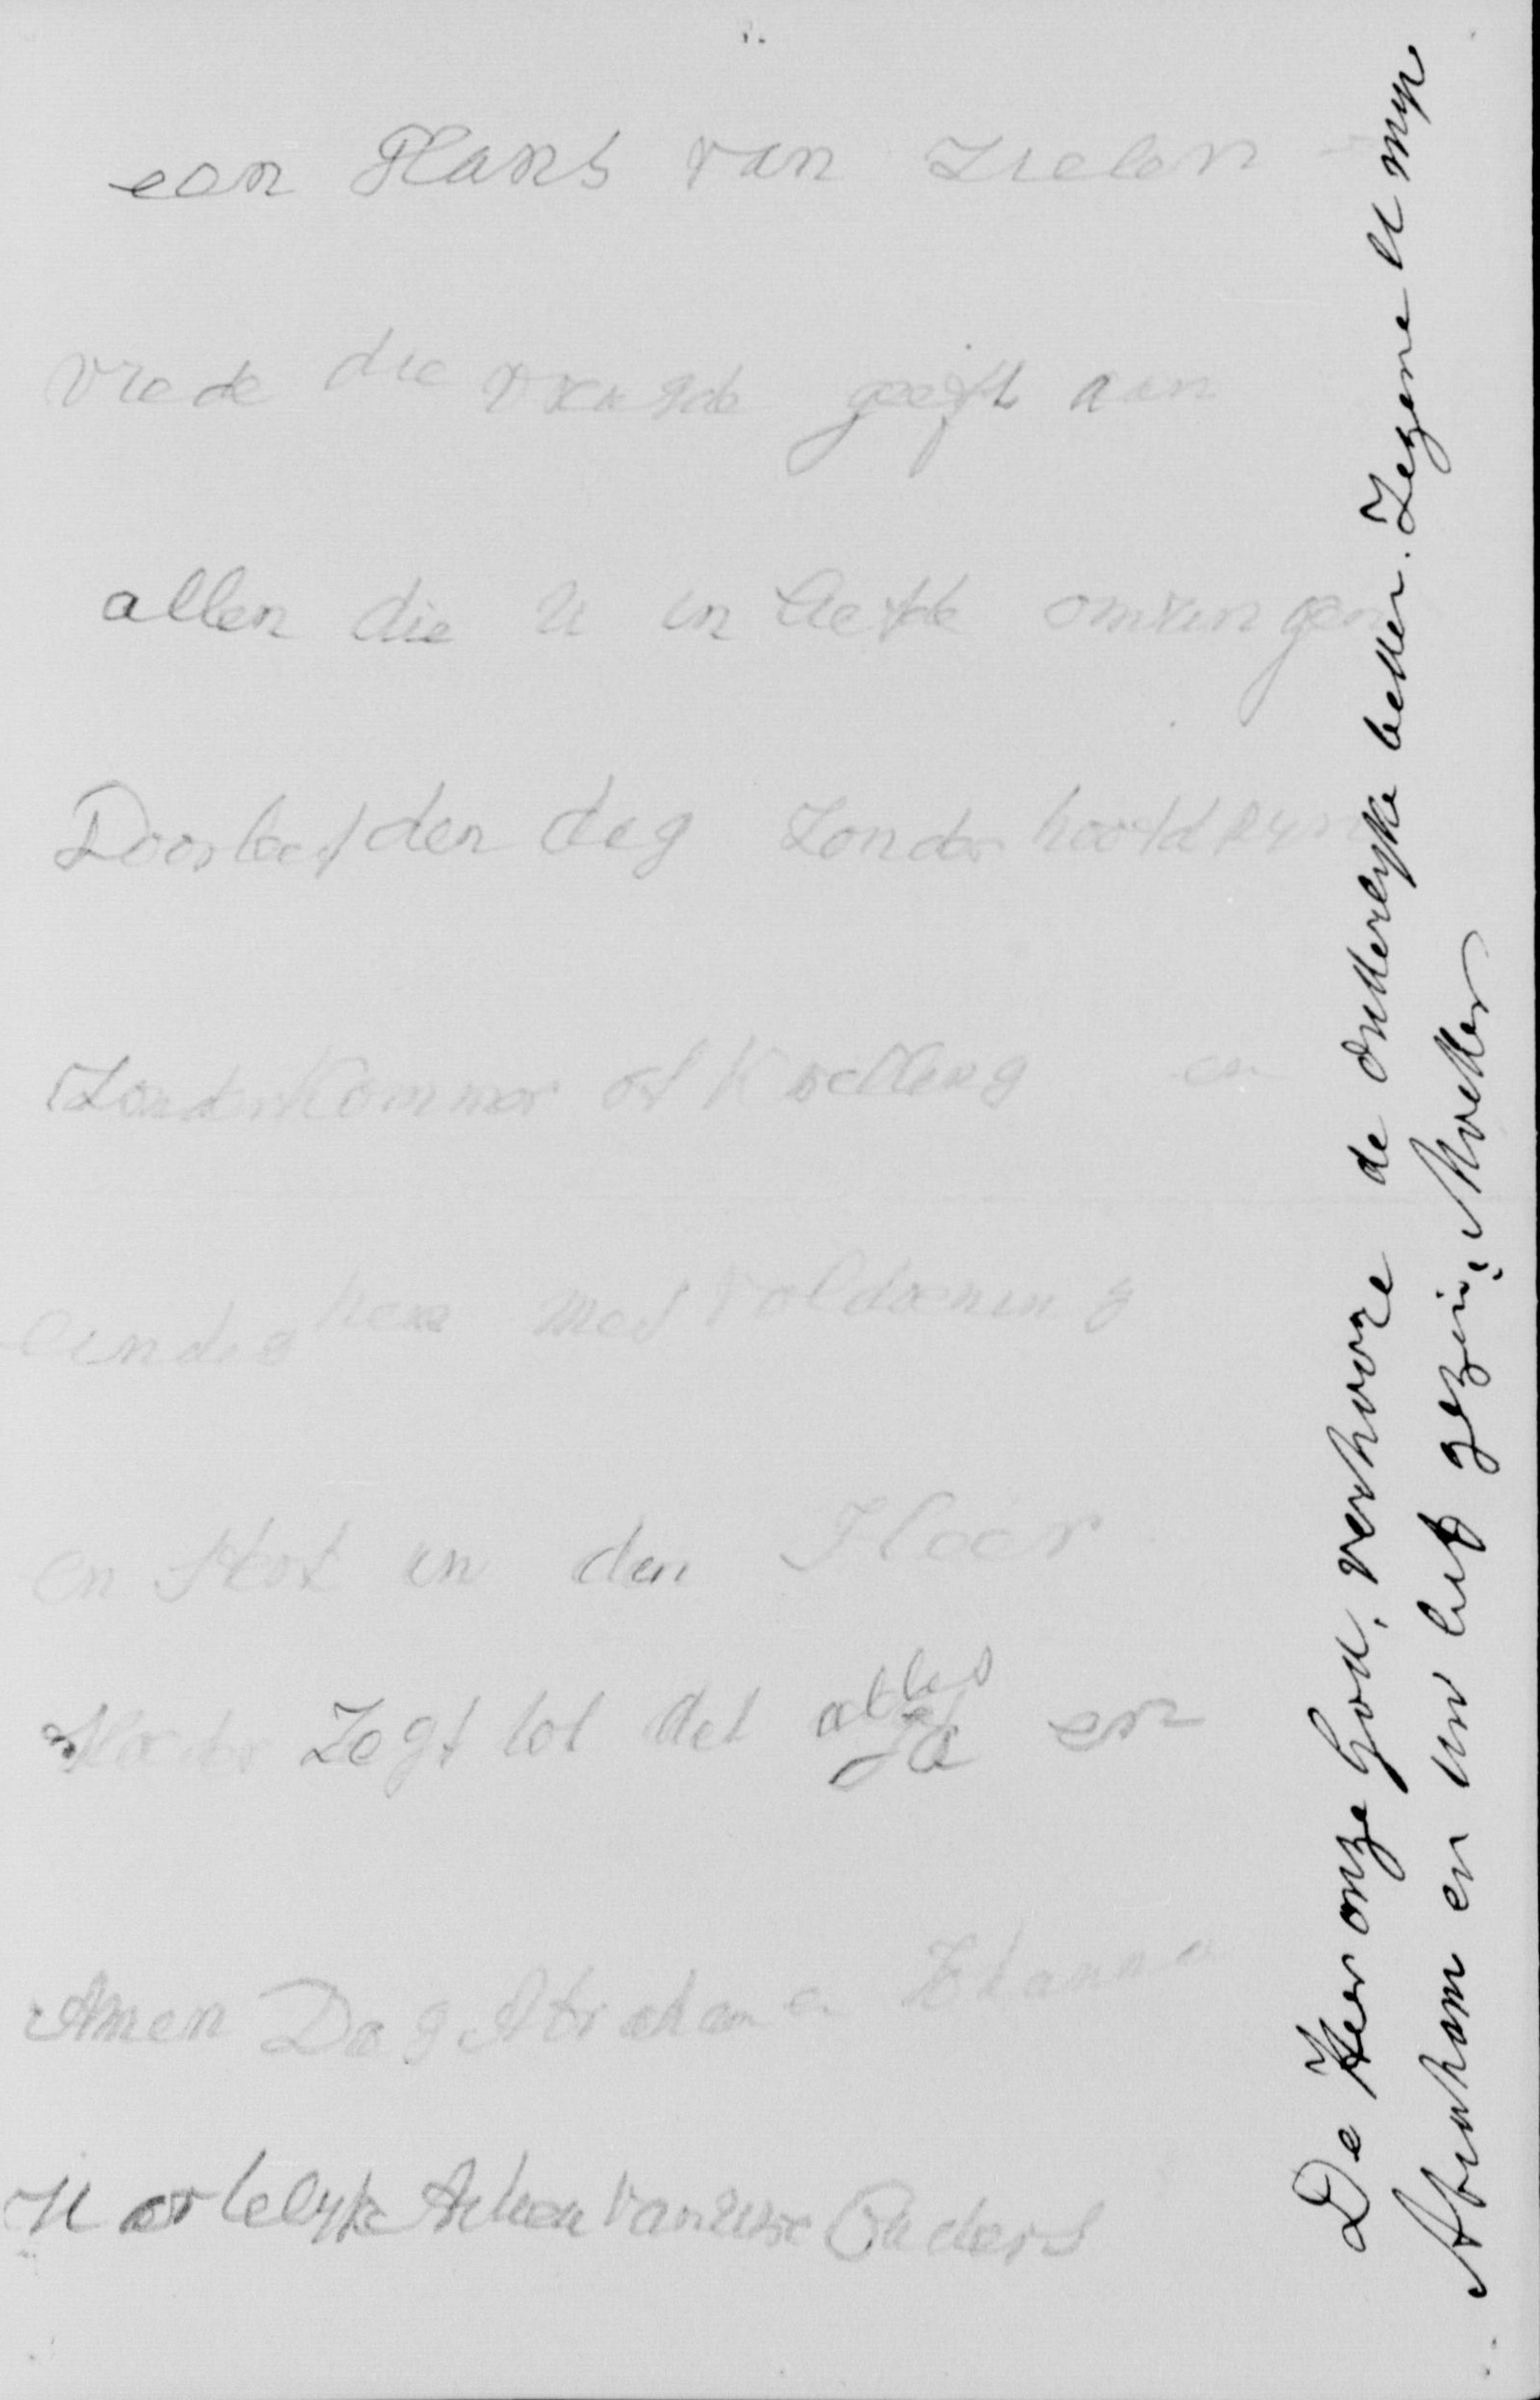 een Plans van Zielen
vrede die vreugde geeft aan
allen die U in liefde omringen
Doorleef den dag Zonder hoofdpyn
Zonder Kommer of Kwelling en
eindig hem met voldoening
en Rust in den Heer
Moeder Zegt tot dat alles ja en
Amen Dag Abraham en Johanna
Hartelyk van Uwe Ouders
De Heer onze God, verhoore de Ouderlyke beden. Zegene U myn
Abraham en uw lief gezin, Moeder